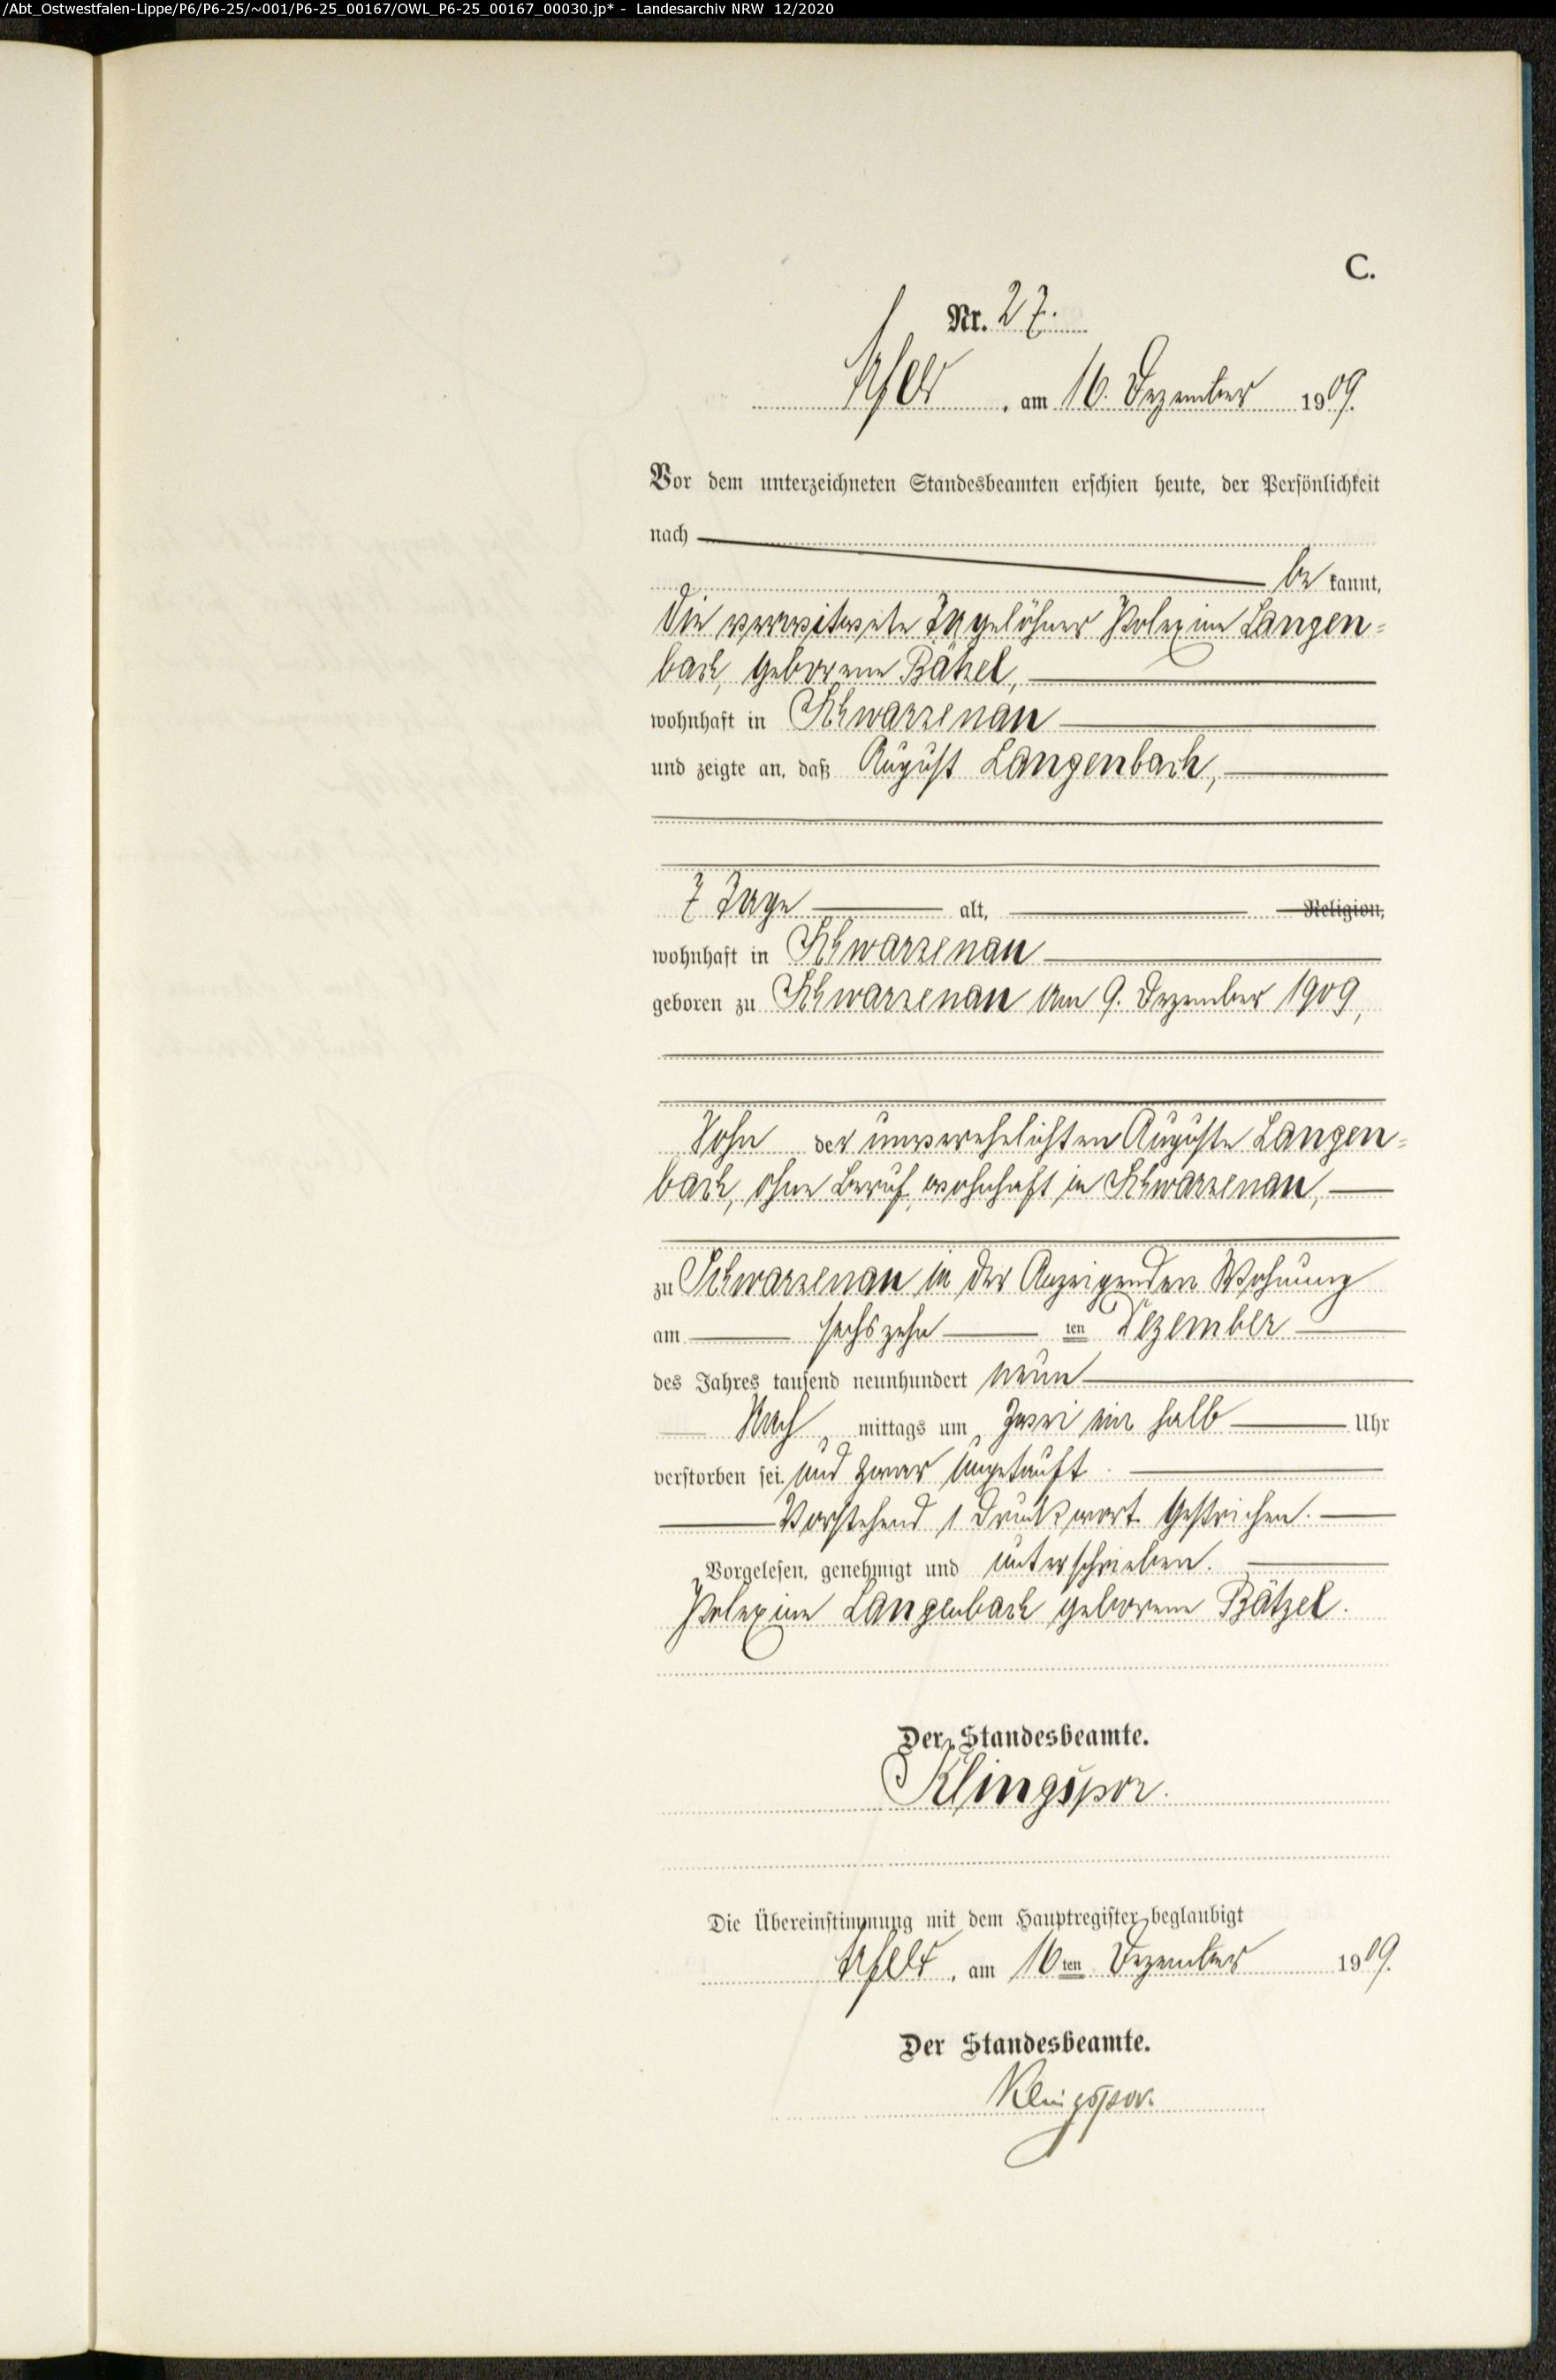 /Abt_Ostwestfalen-Lippe/P6/P6-25/~001/P6-25_00167/OWL_P6-25_00167_00030.jp* - Landesarchiv NRW 12/2020
C.
Nr. 27.
, am 16. Dezember 1909.
Vor dem unterzeichneten Standesbeamten erschien heute, der Persönlichkeit
nach
be kannt,
die verwitwete Tagelöhner Polexine Langen=
bach, geborene Bätzel,
wohnhaft in Schwarzenau
und zeigte an, daß August Langenbach,
7 Tage alt, Religion,
wohnhaft in Schwarzenau
geboren zu Schwarzenau am 9. Dezember 1909,
Sohn der unverehelichten Auguste Langen=
bach, ohne Beruf, wohnhaft in Schwarzenau,
zu Schwarzenau in der Anzeigenden Wohnung
am sechszehn ten Dezember
des Jahres tausend neunhundert neun
Nach mittags um zwei ein halb Uhr
verstorben sei und zwar ungetauft.
Vorstehend 1 Druckwort gestrichen.
Vorgelesen, genehmigt und unterschrieben.
Polexine Langenbach geborene Bätzel.
Der Standesbeamte.
Klingspor.
Die Übereinstimmung mit dem Hauptregister beglaubigt
, am 16ten Dezember 1909.
Der Standesbeamte.
Klingspor.